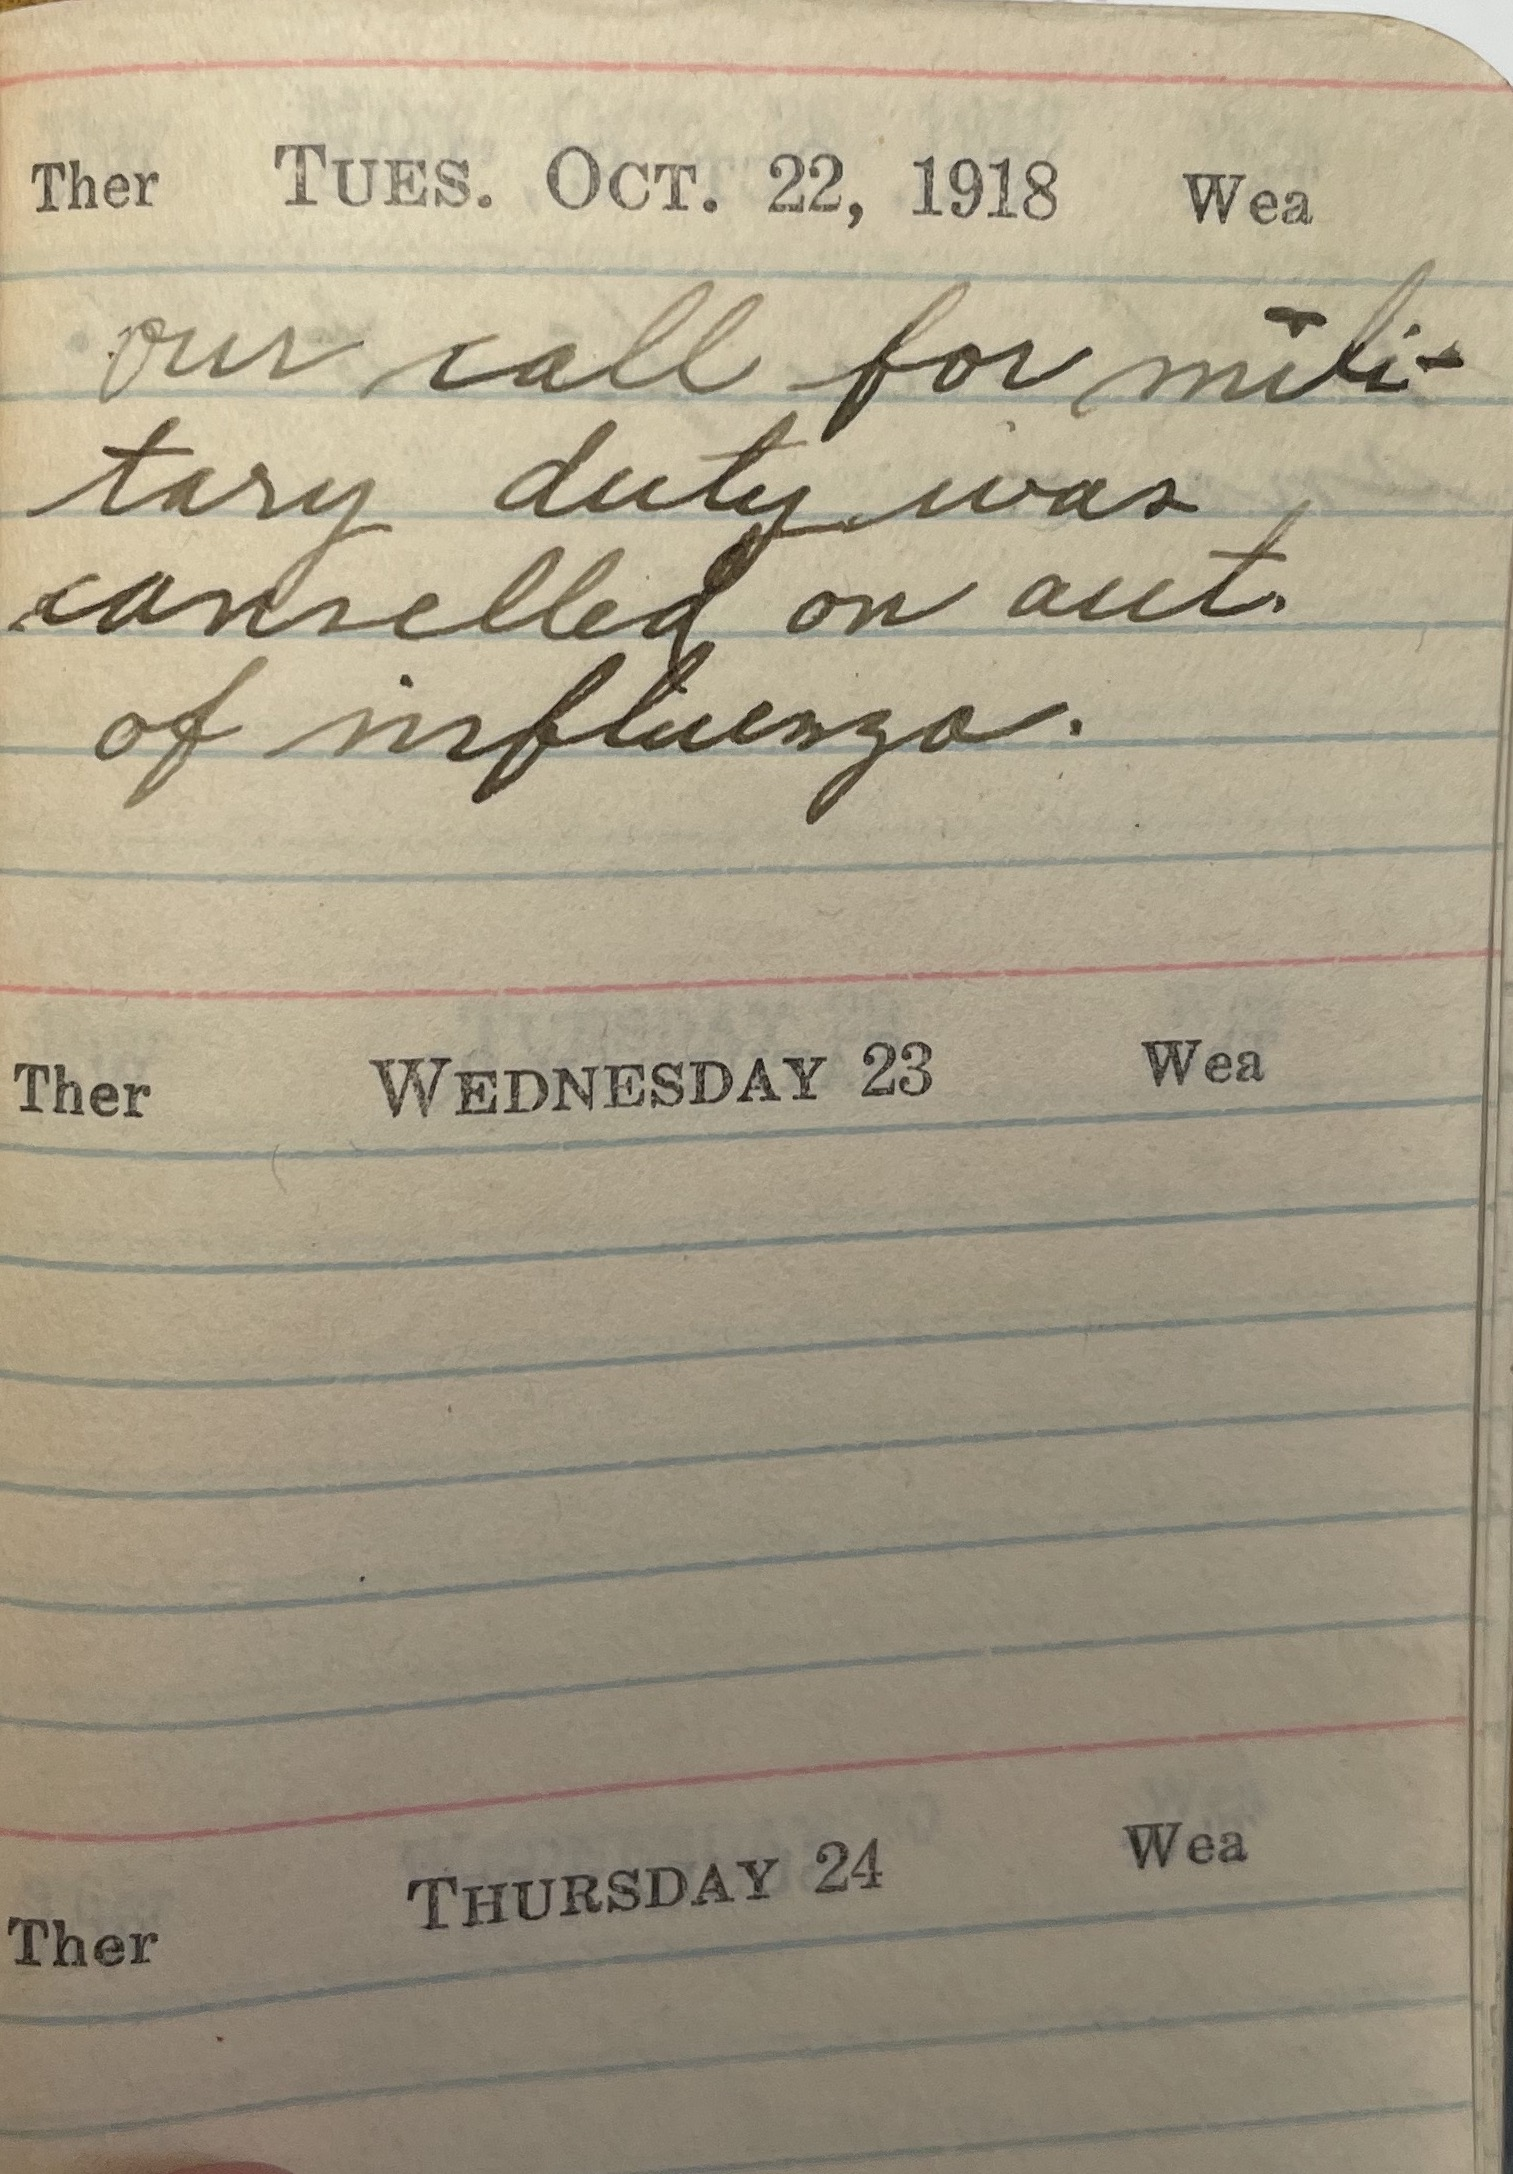 Ther TUES. OCT. 22, 1918 Wea
our call for mili-
tary duty was
cancelled on acct.
of influenza.
Ther WEDNESDAY 23 Wea
Ther THURSDAY 24 Wea